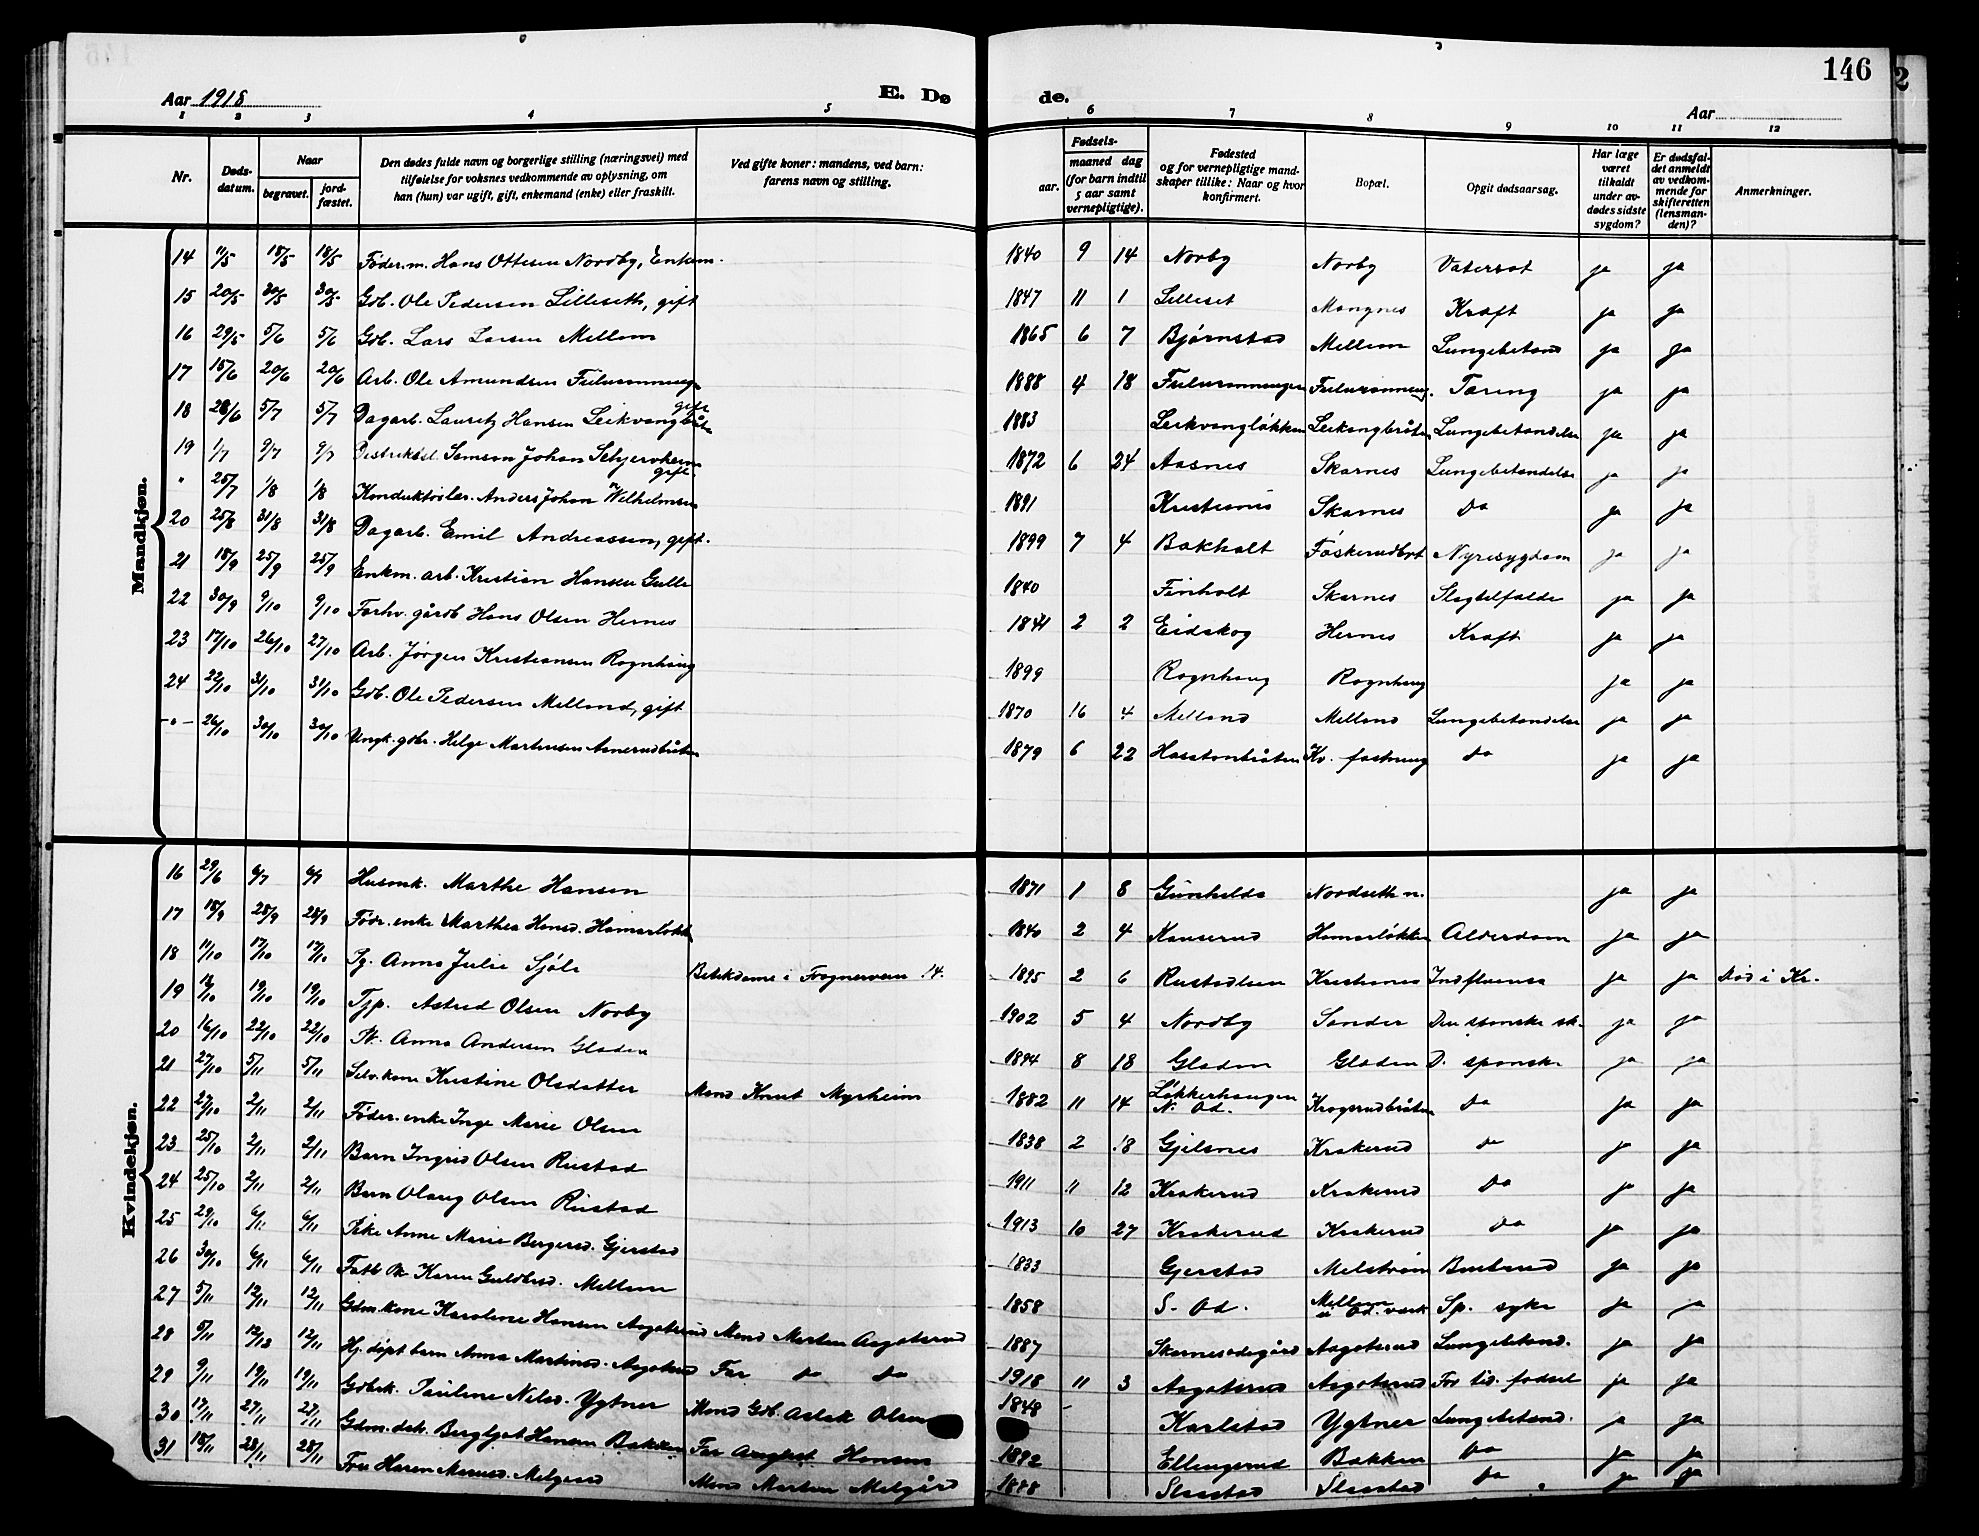 146
Aar 1918
E. Dø
de.
Aar
1 2 3 4 5 6 7 8 9 10 11 12
Nr.
Døds-
datum.
Naar
begravet.
jord-
fæstet.
Den dødes fulde navn og borgerlige stilling (næringsvei) med
tilføielse for voksnes vedkommende av oplysning, om
han (hun) var ugift, gift, enkemand (enke) eller fraskilt.
Ved gifte koner: mandens, ved barn:
farens navn og stilling.
Fødsels-
aar.
maaned dag
(for barn indtil
5 aar samt
vernepligtige).
Fødested
og for vernepligtige mand-
skaper tillike: Naar og hvor
konfirmert.
Bopæl.
Opgit dødsaarsag.
Har læge
været
tilkaldt
under av-
dødes sidste
sygdom?
Er dødsfal-
det anmeldt
av vedkom-
mende for
skifteretten
(lensman-
den)?
Anmerkninger.
Mandkjøn.
14 11/5 18/5 18/5 Föder.m. Hans Ottesen Nordby, Enkem. 1840 9 14 Norby Norby Vatersot ja ja
15 20/5 30/5 30/5 Gdb. Ole Pedersen Lilleseth, gift 1847 11 1 Lilleset Mangnes Kraft ja ja
16 29/5 5/6 5/6 Gdb. Lars Larsen Mellem 1865 6 7 Bjørnstad Mellem Lungebetend ja ja
17 15/6 20/6 20/6 Arb. Ole Amundsen 1888 4 18 Tæring ja ja
18 28/6 5/7 5/7 Dagarb. Lauritz Hansen Leikvangbråten gift 1883 Leikvangløkken Leikangbråten Lungebetendelse ja ja
19 1/7 9/7 9/7 Samson Johan gift 1872 6 24 Aasnes Skarnes Lungebetendelse ja ja
" 25/7 1/8 1/8 Anders Johan Wilhelmsen 1891 Skarnes Do ja ja
20 25/8 31/8 31/8 Dagarb. Emil Andreassen, gift. 1899 7 4 Bakholt Nyresygdom ja ja
21 18/9 25/9 25/9 Enkm. arb. Kristian Hansen Gulli 1840 Finholt Skarnes Slagtilfælde ja ja
22 30/9 9/10 9/10 Forhv. gårdb Hans Olsen Hernes 1841 2 2 Eidskog Hernes Kraft ja ja
23 17/10 26/10 27/10 Arb. Jörgen Kristiansen Rognhaug 1899 Rognhaug Rognhaug ja ja
24 22/10 31/10 31/10 Gdb. Ole Pedersen Melland, gift 1870 16 4 Melland Melland Lungebetendelse ja ja
-"- 26/10 30/10 30/10 Ungk. gdbr. Helge Martinsen 1879 6 22 Kv. fæstning do ja ja
Kvindekjøn.
16 29/6 6/7 6/7 Husmk. Marthe Hansen 1871 1 8 Nordseth n. ja ja
17 18/9 28/9 28/9 Födr. enke Marthea Hansd. Hamarløkk 1840 2 4 Kanserud Hamarløkken Alderdom ja ja
18 11/10 17/10 17/10 Pg. Anna Julie Sjöli Frognerveien 14. 1895 2 6 Rustadsen Kristiania Indfluensa ja ja död i Kr.
19 12/10 19/10 19/10 Tjp. Astrid Olsen Norby 1902 5 4 Nordby Sander Den spanske sk. ja ja
20 16/10 22/10 22/10 Pk. Anna Andersen Gladen 1894 8 18 Gladen Gladen D. spanske ja ja
21 27/10 5/11 5/11 Selv. kone Kristine Olsdatter Mand Knut Myrheim 1882 11 14 Løkkerhaugen N. Od. Krogsrudbråten do ja ja
22 27/10 2/11 2/11 Föder. enke Inge Marie Olsen 1838 2 18 Gjelsnes Krakerud do ja ja
23 25/10 2/11 2/11 Barn Ingrid Olsen Rustad 1911 11 12 Krakerud Krakerud do ja ja
24 25/10 2/11 2/11 Barn Olaug Olsen Rustad 1913 10 27 Krakerud Krakerud do ja ja
25 29/10 6/11 6/11 Pike Anne Marie Bergersd. Gjerstad 1833 Gjerstad Melstrøm ja ja
26 30/10 6/11 6/11 Fattl Pk Karen Guldbrd. Mellem 1858 S. Od. Mellem Sp. syke ja ja
27 5/11 12/11 12/11 Gdm. kone Karoline Hansen Aagotsrud Mand Morten Aagotsrud 1887 Skarnesødegård Aagotsrud Lungebetend. ja ja
28 5/11 12/12 12/11 Hj. döpt barn Anna Martinsd. Aagotsrud Far do do 1918 11 3 Aagotsrud Aagotsrud For tid. fødsel ja ja
29 9/11 19/11 19/11 Gdbrk. Pauline Nilsd. Ygtner Mand Gdb. Aslak Olsen 1848 Karlstad Ygtner Lungebetend. ja ja
30 17/11 27/11 27/11 Gdm. dat. Bergljot Hansen Bakken Far August Hansen 1892 Ellingsrud Bakken Do ja ja
31 18/11 28/11 28/11 Fru Melgård Mand Morten Melgård 1888 Slaastad Slaastad Do ja ja